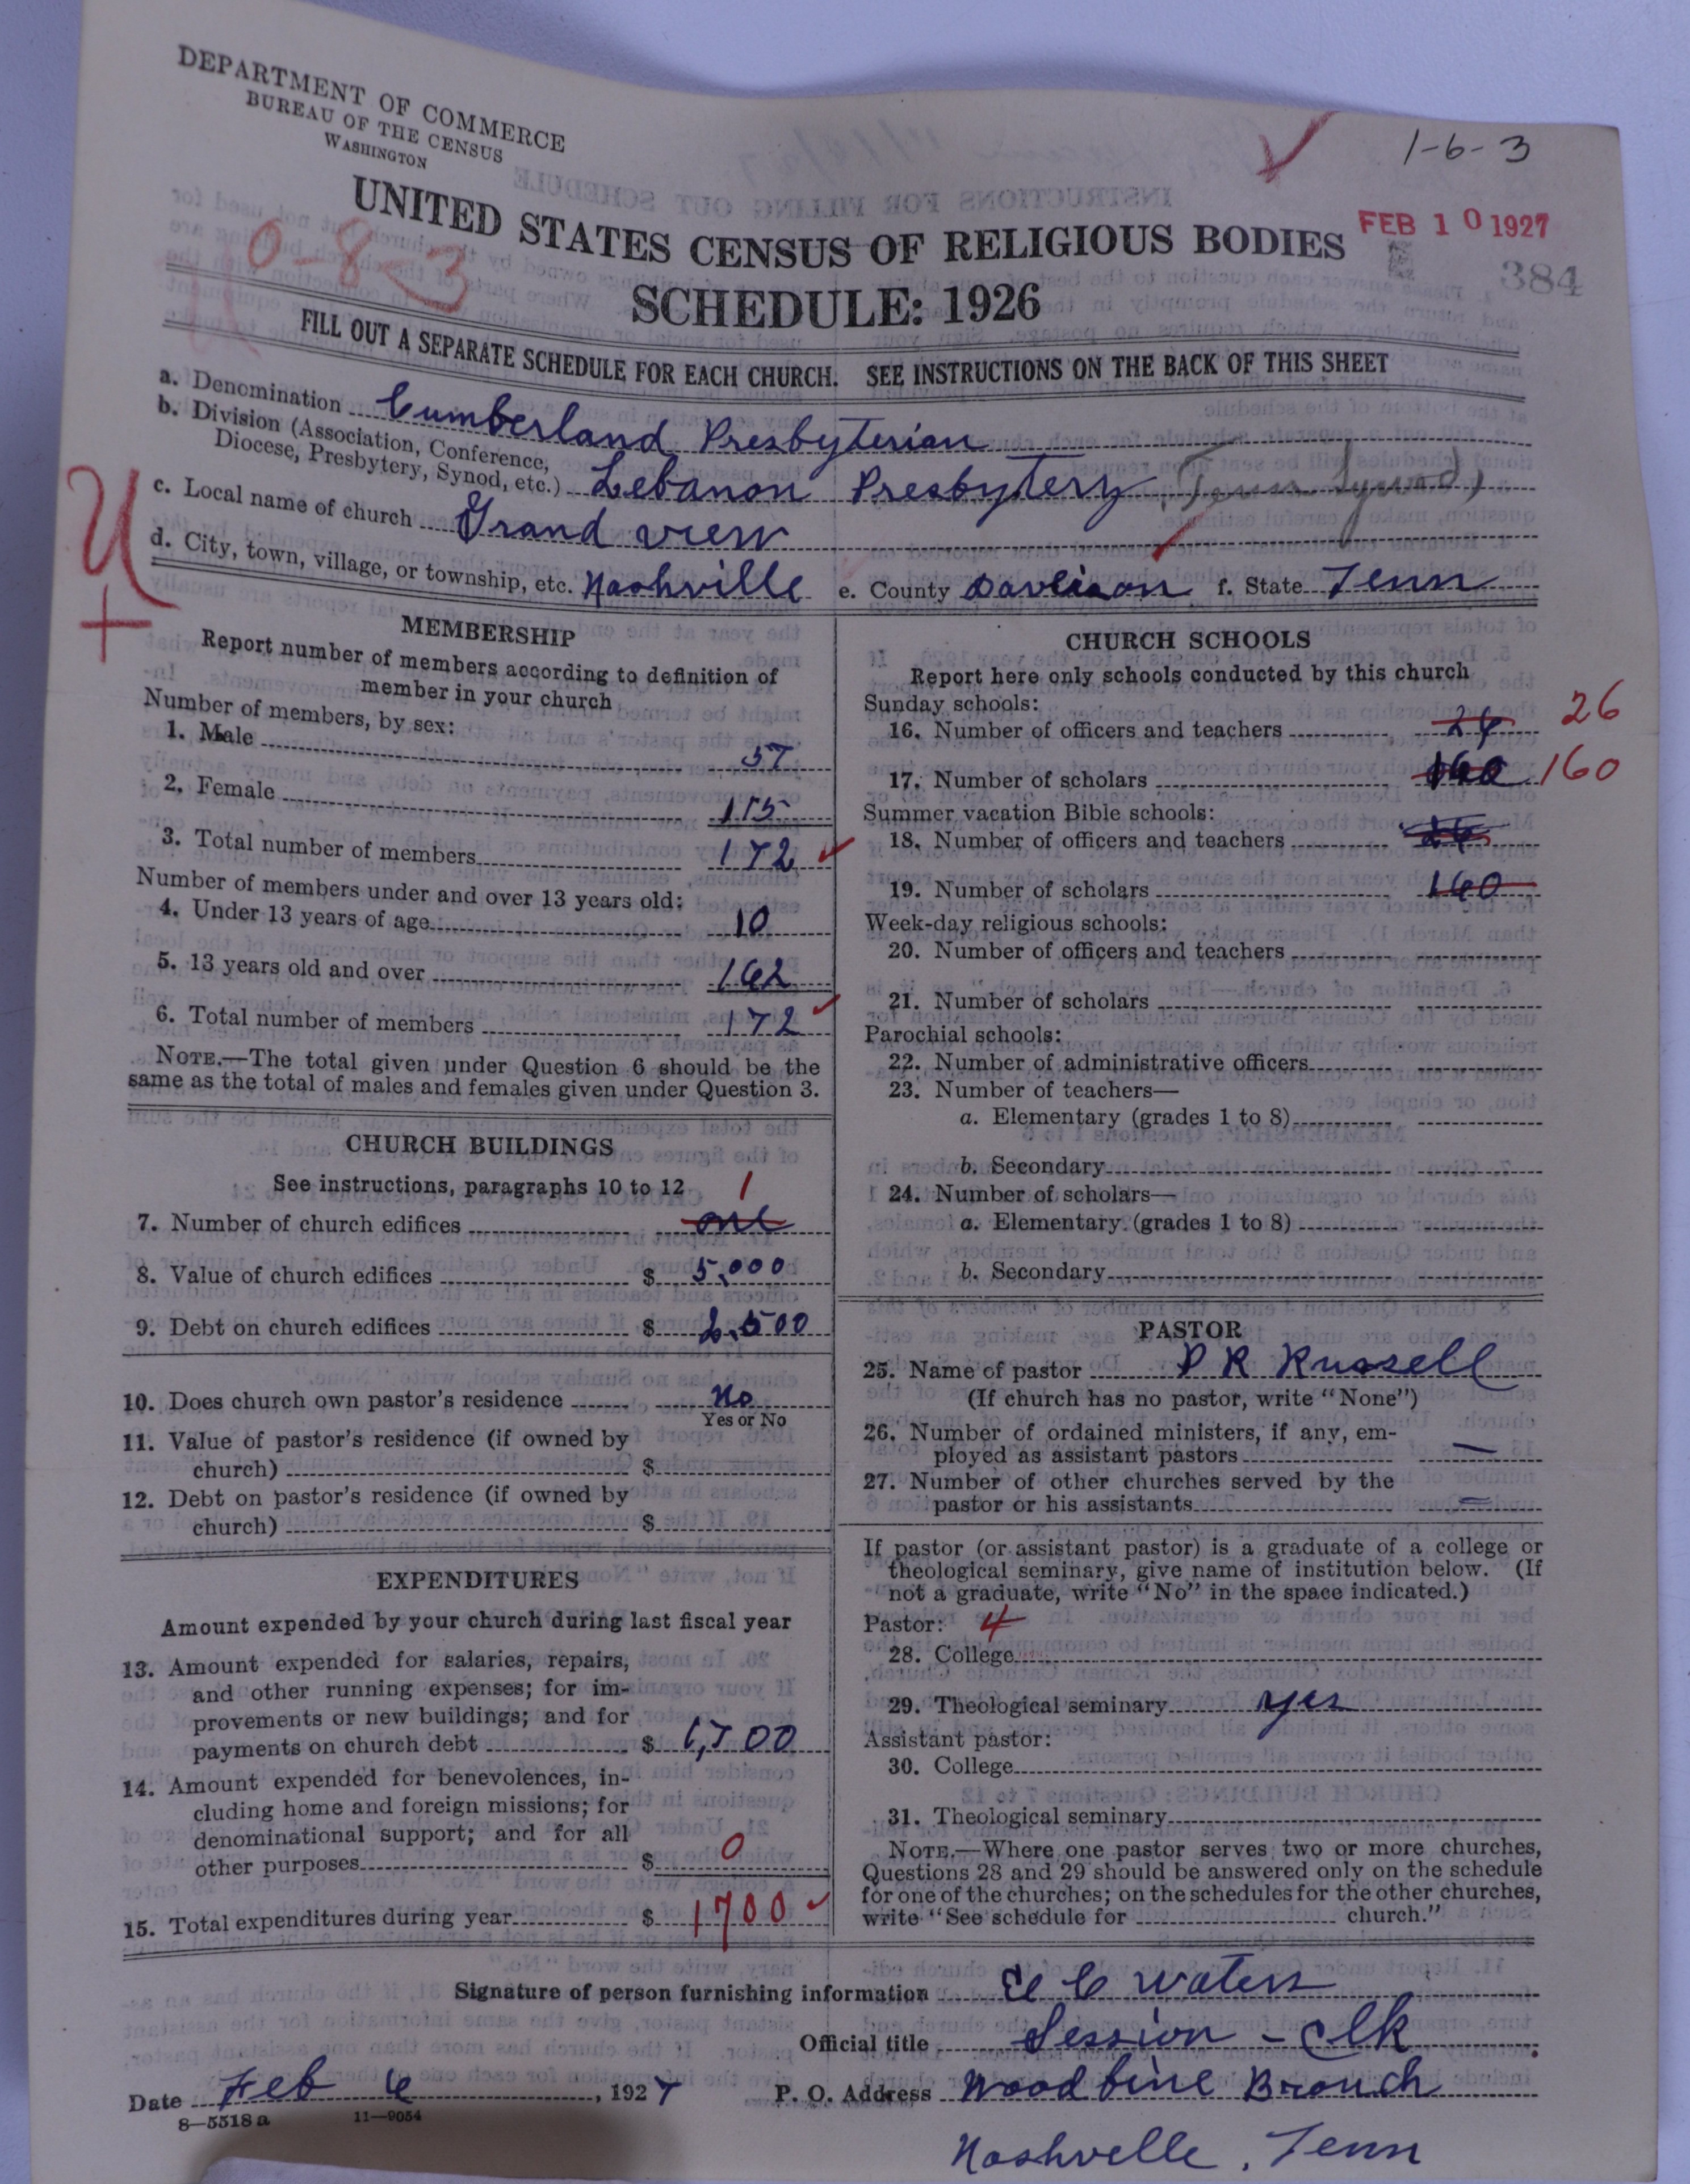 DEPARTMENT OF COMMERCE
BUREAU OF THE CENSUS
WASHINGTON
1-6-3
UNITED STATES CENSUS OF RELIGIOUS BODIES
FEB 10 1927
0-8-3
384
SCHEDULE: 1926
FILL OUT A SEPARATE SCHEDULE FOR EACH CHURCH. SEE INSTRUCTIONS ON THE BACK OF THIS SHEET
a. Denomination Cumberland Presbyterian
b. Division (Association, Conference,
Diocese, Presbytery, Synod, etc.) Lebanon Presbytery (Tenn Synod)
c. Local name of church Grand view
d. City, town, village, or township, etc. Nashville e. County Davison f. State Tenn
MEMBERSHIP
Report number of members according to definition of
member in your church
Number of members, by sex:
1. Male 57
2. Female 115
3. Total number of members 172
Number of members under and over 13 years old:
4. Under 13 years of age 10
5. 13 years old and over 162
6. Total number of members 172
NOTE.—The total given under Question 6 should be the
same as the total of males and females given under Question 3.
CHURCH BUILDINGS
See instructions, paragraphs 10 to 12
1
7. Number of church edifices one
8. Value of church edifices $ 5,000
9. Debt on church edifices $ 2,500
10. Does church own pastor's residence No
Yes or No
11. Value of pastor's residence (if owned by
church) $
12. Debt on pastor's residence (if owned by
church) $
EXPENDITURES
Amount expended by your church during last fiscal year
13. Amount expended for salaries, repairs,
and other running expenses; for im-
provements or new buildings; and for
payments on church debt $ 1,700
14. Amount expended for benevolences, in-
cluding home and foreign missions; for
denominational support; and for all
other purposes $ 0
15. Total expenditures during year $ 1700
CHURCH SCHOOLS
Report here only schools conducted by this church
Sunday schools:
16. Number of officers and teachers 26
17. Number of scholars 160 160
Summer vacation Bible schools:
18. Number of officers and teachers
19. Number of scholars 160
Week-day religious schools:
20. Number of officers and teachers
21. Number of scholars
Parochial schools:
22. Number of administrative officers
23. Number of teachers—
a. Elementary (grades 1 to 8)
b. Secondary
24. Number of scholars—
a. Elementary (grades 1 to 8)
b. Secondary
PASTOR
25. Name of pastor P R Russell
(If church has no pastor, write "None")
26. Number of ordained ministers, if any, em-
ployed as assistant pastors —
27. Number of other churches served by the
pastor or his assistants —
If pastor (or assistant pastor) is a graduate of a college or
theological seminary, give name of institution below. (If
not a graduate, write "No" in the space indicated.)
Pastor: 4
28. College
29. Theological seminary yes
Assistant pastor:
30. College
31. Theological seminary
NOTE.—Where one pastor serves two or more churches,
Questions 28 and 29 should be answered only on the schedule
for one of the churches; on the schedules for the other churches,
write "See schedule for church."
Signature of person furnishing information C C Waters
Official title Session - Clk
Date Feb 6, 1927 P. O. Address Woodbine Branch
8—5518 a 11—9054
Nashvelle, Tenn